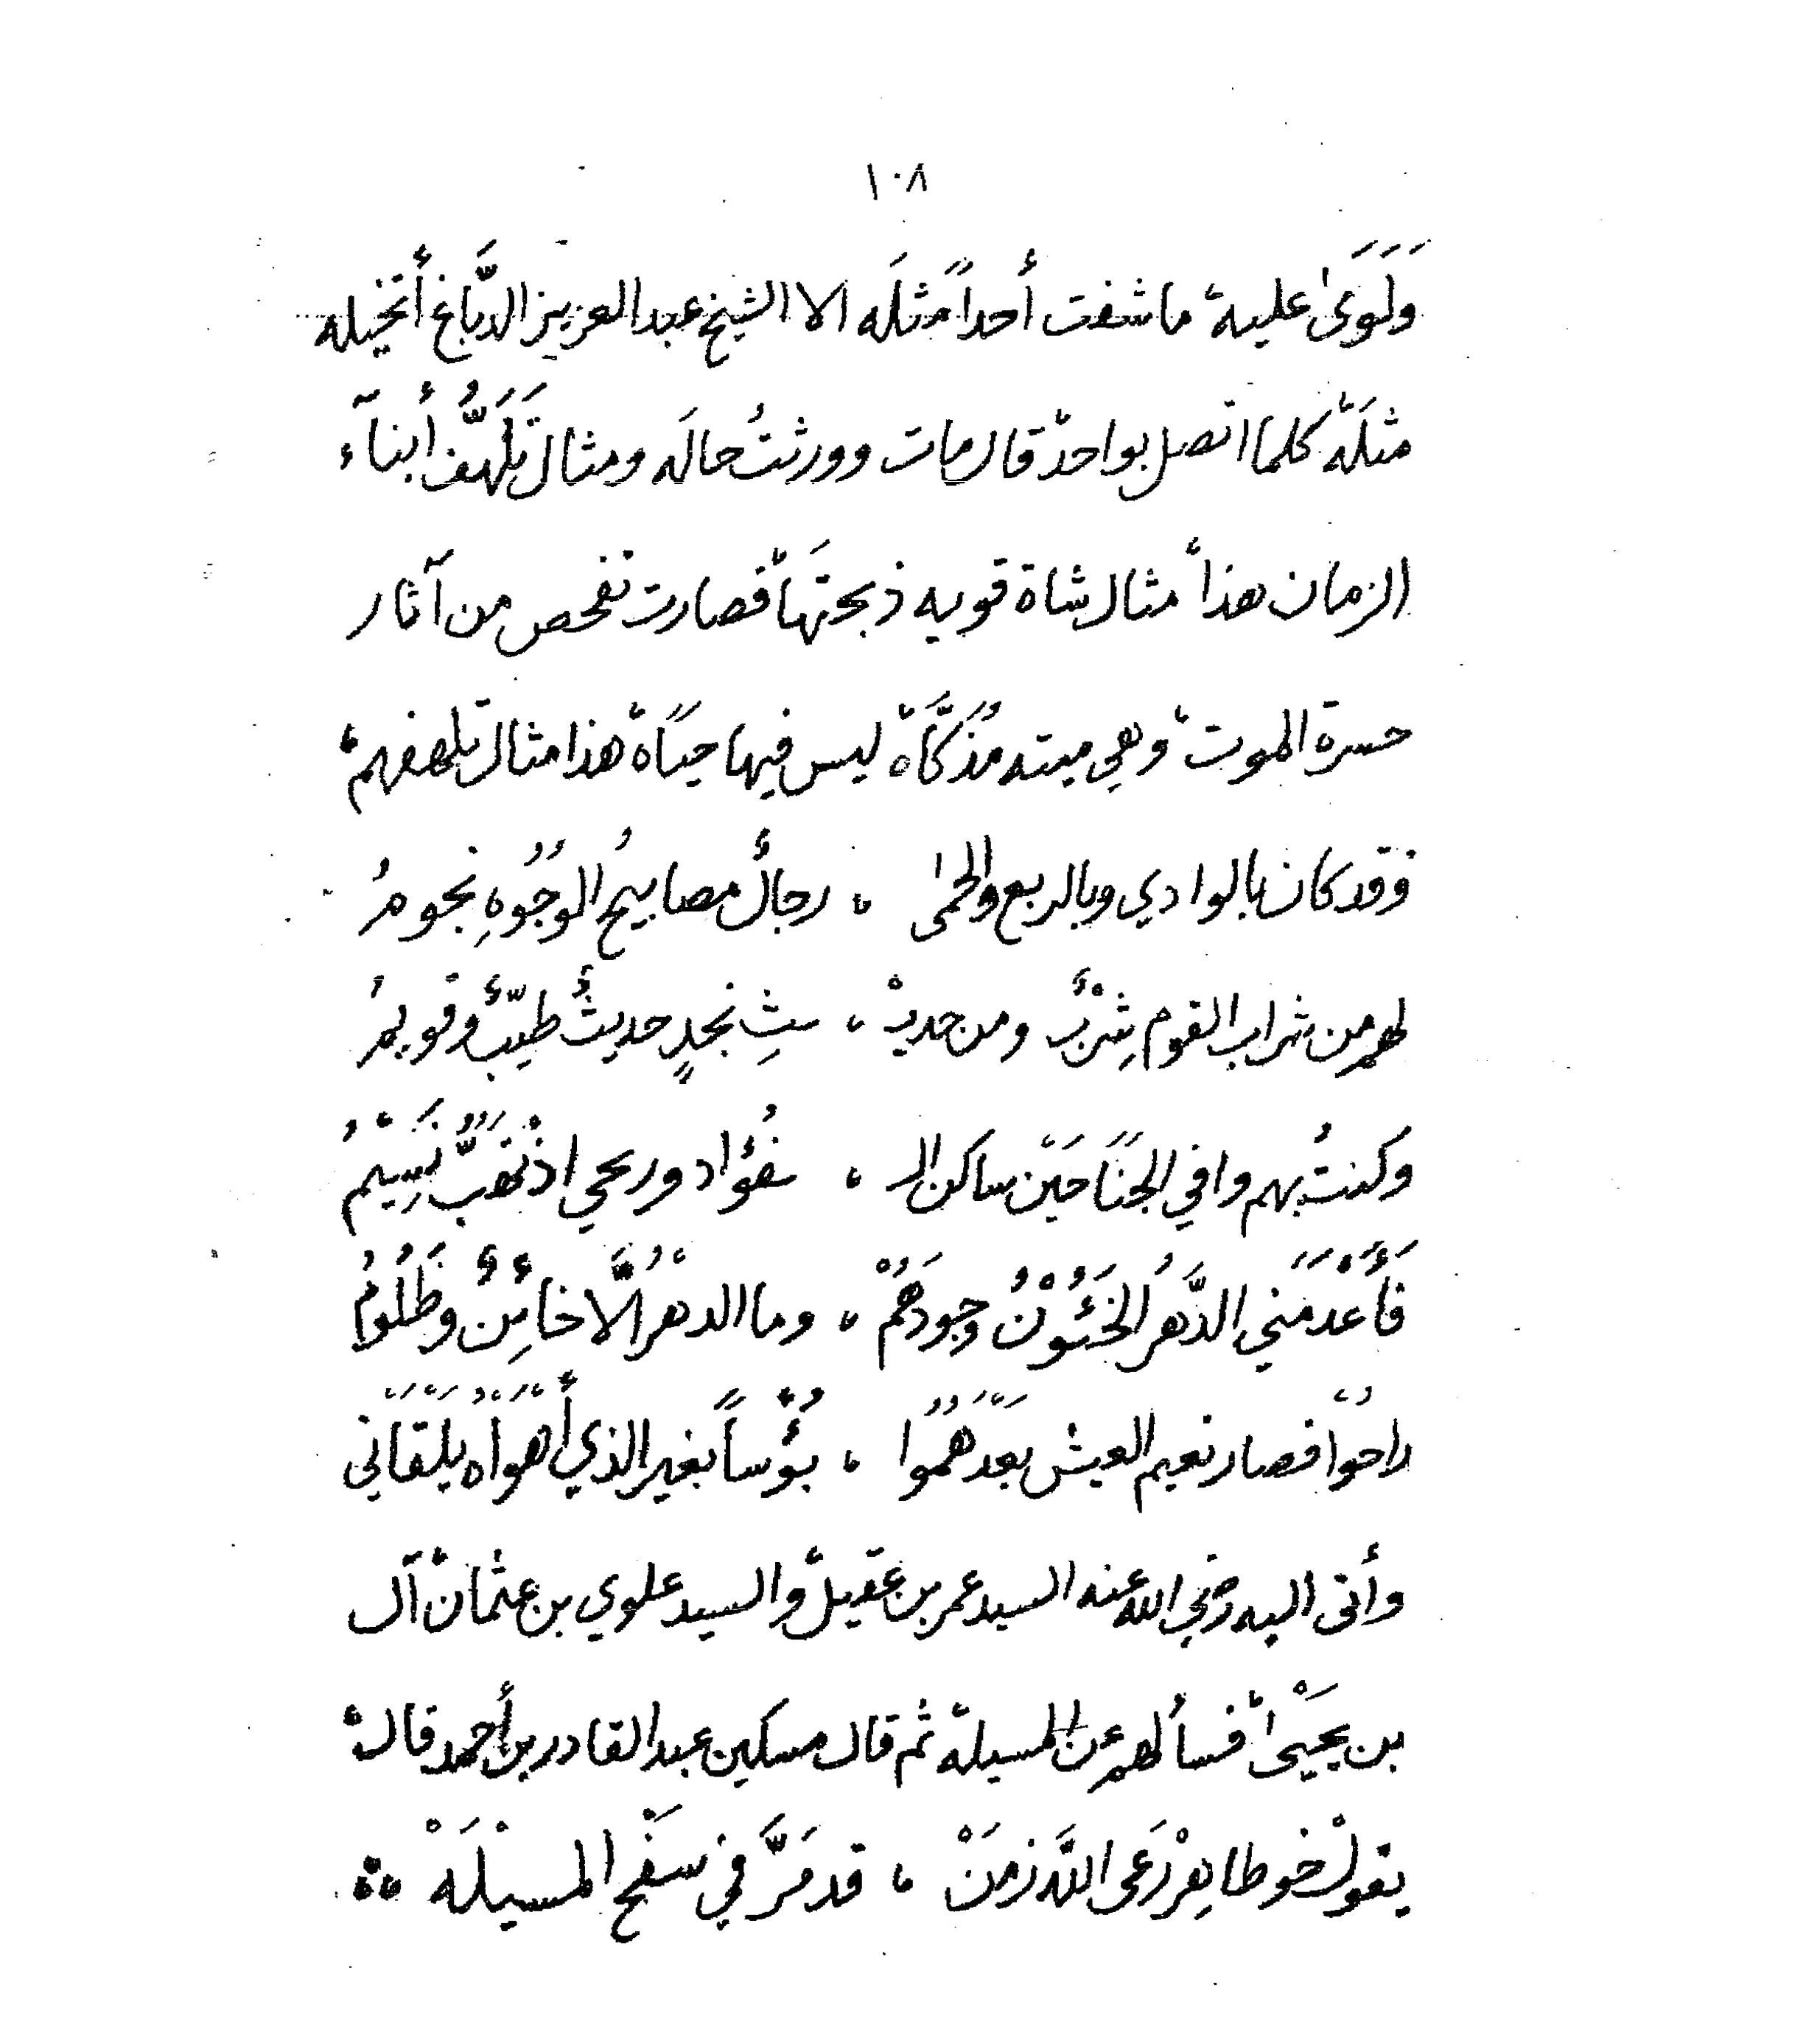 ١٠٨
وَلَوَىٰ عليه، ما شفت أحداً مثلَه الا الشيخ عبد العزيز الدَّباغ أتخيله
مثلَه، كلما اتصل بواحد، قال مات وورثتُ حالَه ومثال تَلَهُّف أبنآء
الزمان هذا، مثال شاة قويه ذبحتَها، فصارت تفحص من آثار
حسرة الموت، وهي ميته مُذَكَّاة، ليس فيها حيَاة، هذا مثال تلهفهم،
فقد كان بالوادي وبالربع والحمىٰ ، رجالٌ مصابيحُ الوجُوُهِ نجومُ
لهم من شراب القوم شِرْبٌ ومن حديـْ ، ـثِ نجدٍ حديثٌ طيّبٌ وقويمُ
وكنتُ بهم وافي الجنَاحَيْن ساكن الـ ، ـفُؤاد وريحي اذْ تَهَبُّ نَسِيْمُ
فَأَعْدَمَني الدَّهرُ الخَئُوْنُ وجودَهُمْ ، وما الدهْرُ الَّا خائِنٌ وظَلُومُ
راحُوْا فصار نعيم العيش بعْدَهُمُوا ، بُؤْساً بغير الذي أَهْوَاْهُ يَلْقَاْني
وأتى اليه رضي الله عنه السيد عمر بن عقيل، والسيد علوي بن عثمان، آل
بن يحيَىْ، فسألهم عن المسيله، ثم قال مسكين عبد القادر بن أحمد قال،
يقولْ خو طاهِرْ رَعى اللَّه زمَنْ ، قد مَرَّ في سَفْح المسيْلَهْ ؞